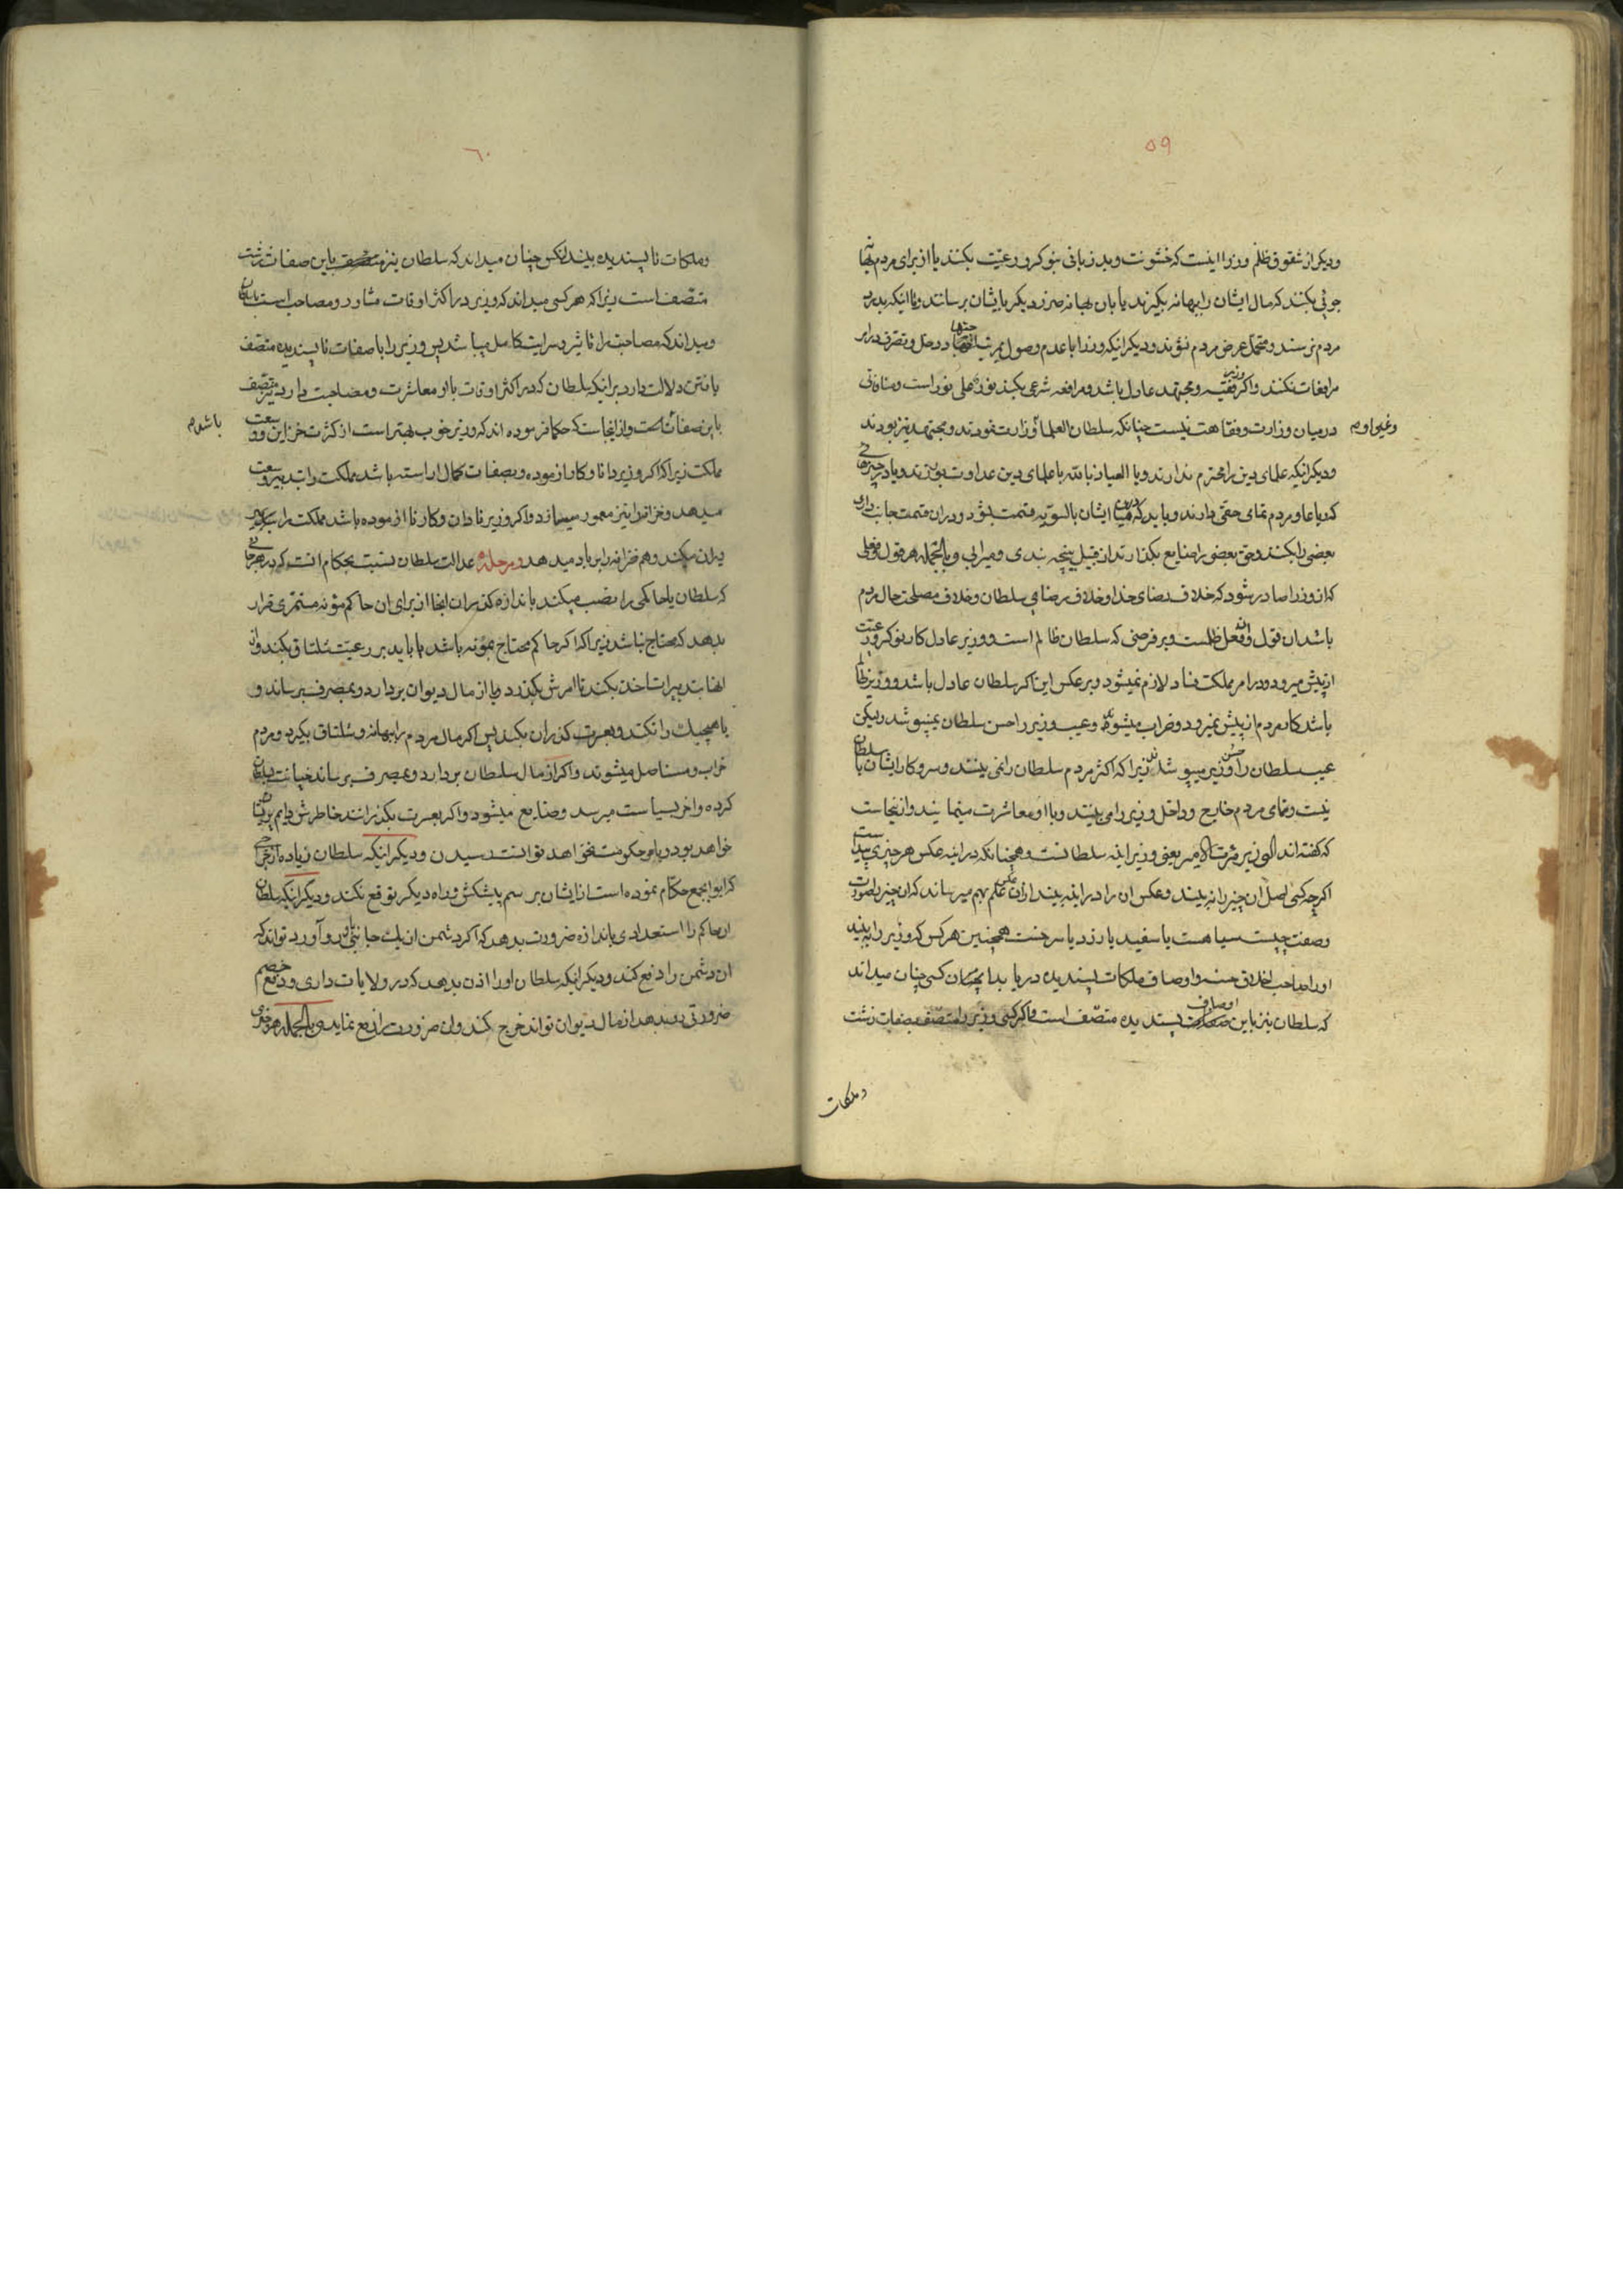 ۵۹
ودیکر از شقوق ظلم وزرا اینست که خشونت وبدزبانی بنوکر ورعیّت بکنند یا از برای مردم بهانه
جوئی بکنند که مال ایشان را ببهانه بکیرند یا بان بهانه ضرر دیکر بایشان برسانند ویا اینکه بدرد
مردم نرسند ومتحمل عرض مردم نشوند ودیکر اینکه وزرا با عدم وصول بمرتبه اجتهاد ودخل وتصرف در امر
مرافعات نکنند واکر وزیر فقیه ومجتهد عادل باشد ومرافعه شرعی بکند نور علی نور است ومنافاتی
درمیان وزارت وفقاهت نیست چنانکه سلطان العلما وزارت نمودند ومجتهد نیز بودند
وغیر او هم
ودیکر اینکه علمای دین را محترم ندارند ویا العیاذ بالله با علمای دین عداوت بورزند ویا در چیزهائی
که رعایا ومردم تمامی حقی دارند وباید که درمیان ایشان بالسویه قسمت بشود ودران قسمت جانب داری
بعضی را بکنند وحق بعضی را ضایع بکذارند از قبیل بنیچه بندی ومیرابی وبالجمله هر قول وفعلی
که از وزرا صادر شود که خلاف رضای خدا وخلاف رضای سلطان وخلاف مصلحت حال مردم
باشد ان قول وان فعل ظلمست وبر فرضی که سلطان ظالم است ووزیر عادل کار نوکر ورعیّت
از پیش میرود ودر امر مملکت فساد لازم نمیشود وبر عکس این اکر سلطان عادل باشد ووزیر ظالم
باشد کار مردم از پیش نمیرود وخراب میشوند وعیب وزیر را حسن سلطان نمیپوشد ولیکن
عیب سلطان را حسن وزیر میپوشاند زیرا که اکثر مردم سلطان را نمی بینند وسروکار ایشان با سلطان
نیست وتمامی مردم خارج وداخل وزیر را می بینند وبا او معاشرت مینمایند وازینجاست
که کفته اند الوزیر مرآت الامیر یعنی وزیر اینه سلطانست وهمچنانکه در اینه عکس هر چیزی پیداست
اکرچه کسی اصل ان چیز را نه بیند وعکس ان را در اینه بیند ازان عکس علم بهم میرساند که ان چیز بصورت
وصفت چیست سیاهست یا سفید یا زرد یا سرخست همچنین هرکس که وزیر را به بیند
اورا صاحب اخلاق حسنه واوصاف وملکات پسندیده دریابد همچنان کسی چنان میداند
که سلطان نیز باین اوصاف پسندیده متصّف است واکر کسی وزیر را متصّف بصفات زشت
وملکات
٦٠
وملکات ناپسندیده بیند انکس چنان میداند که سلطان نیز باین صفات زشت
متصّف است زیرا که هر کسی میداند که وزیر در اکثر اوقات مشاور ومصاحب است با سلطان
ومیداند که مصاحبت را تاثیر وسرایت کامل میباشد پس وزیر را با صفات ناپسندیده متصّف
یافتن دلالت دارد برانکه سلطان که در اکثر اوقات با او معاشرت ومصاحبت دارد نیز متصّف
باین صفاتست وازینجاست که حکما فرموده اند که وزیر خوب بهتر است از کثرت خزاین ووسعت
باشد م
مملکت زیرا که اکر وزیر دانا وکار ازموده وبصفات کمال اراسته باشد مملکت را بتدبیر وسعت
میدهد وخزانه را نیز معمور میسازد واکر وزیر نادان وکار نا ازموده باشد مملکت را
ویران میکند وهم خزانه را بر باد میدهد ومرحله عدالت سلطان نسبت بحکام انست که در هر جائی
که سلطان یا حاکمی را نصب میکند باندازه کذران انجا از برای ان حاکم مؤنه مستمری قرار
بدهد که محتاج نباشد زیرا که اکر حاکم محتاج بمؤنه باشد یا باید بر رعیّت شلتاق بکند واز
انها بدیرات اخذ بکند تا امرش بکذرد ویا از مال دیوان بردارد وبمصرف برساند و
یا هیچیک را نکند وبعسرت کذران بکند پس اکر مال مردم را ببهانه وشلتاق بکیرد ومردم
خراب ومستاصل میشوند واکر از مال سلطان بردارد وبمصرف برساند خیانت بسلطان
کرده واخر بسیاست میرسد وضایع میشود واکر بعسرت بکذرانند خاطرش دایم پریشان
خواهد بود وبامر حکومت نخواهد توانست رسیدن ودیکر اینکه سلطان زیاده از خرجی
که ابوابجمع حکام نموده است از ایشان برسم پیشکش وراه دیکر توقع نکند ودیکر اینکه سلطان
ان حاکم را استعدادی باندازه ضرورت بدهد که اکر دشمن از یک جانبی باو رو آورد تواند که
ان دشمن را دفع کند ودیکر اینکه سلطان اورا اذن بدهد که در ولایات داری ودفع خصم
ضرورتی رو بدهد از مال دیوان تواند خرج کند وان ضرورت را رفع نماید وبالجمله هر خرجی